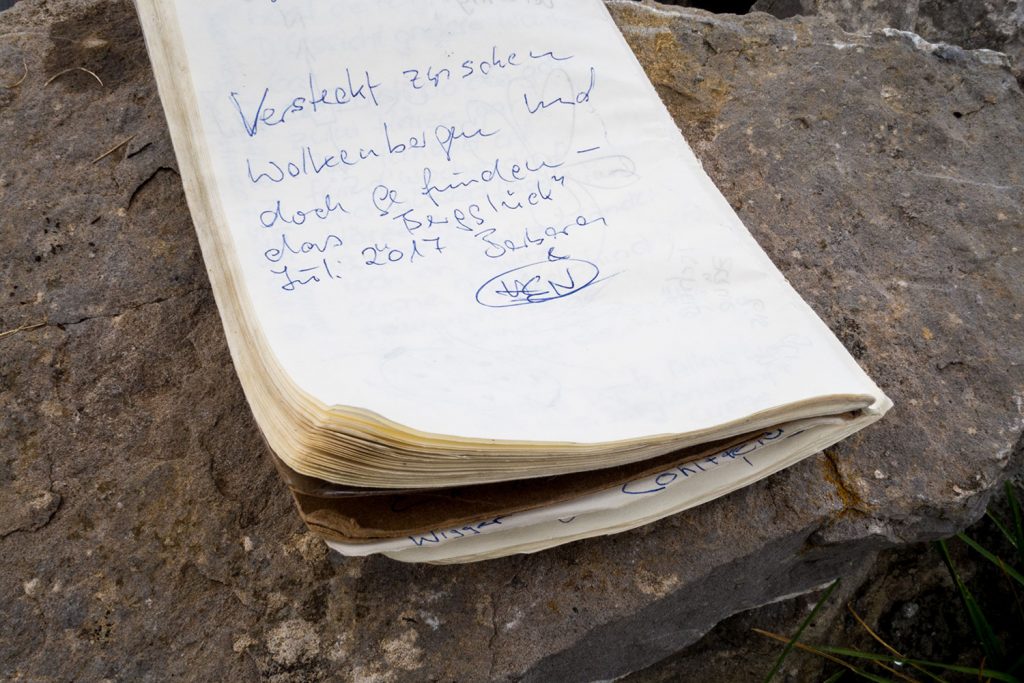 Versteckt zwischen
Wolkenbergen und
doch gefunden –
das "Bergglück"
Juli 2017 Barbara
&
Wisger